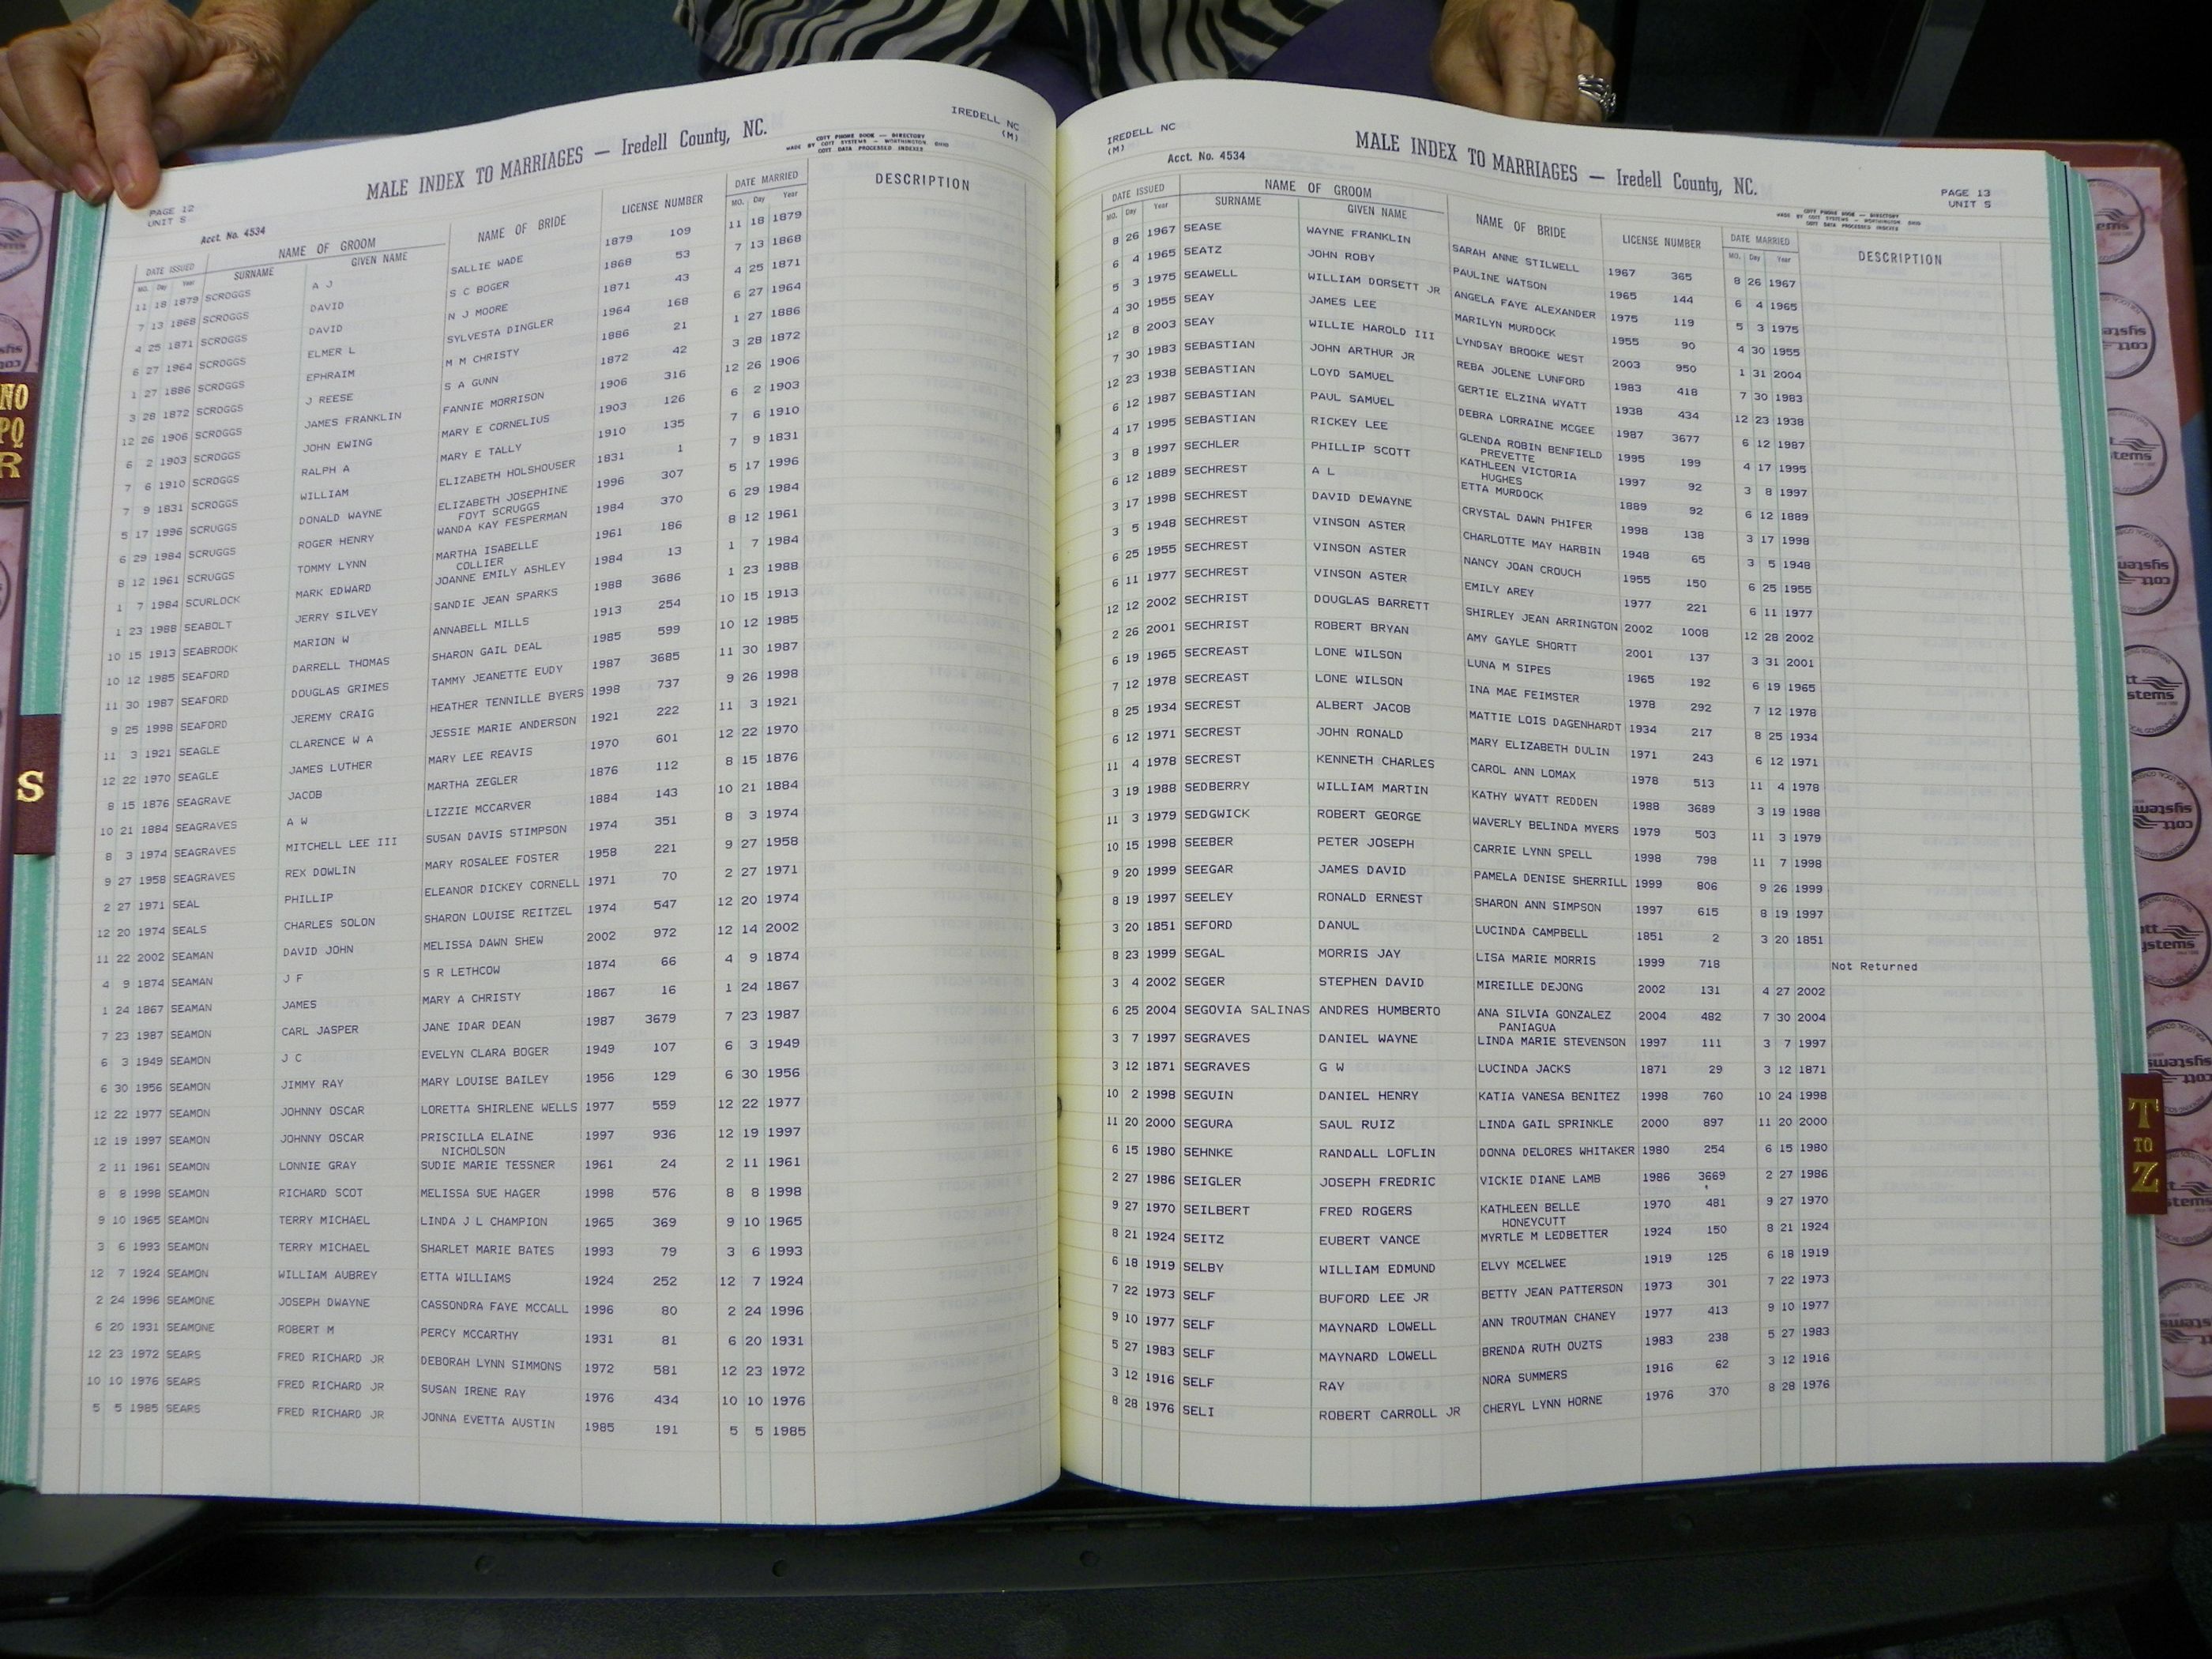 IREDELL NC
(M)
MALE INDEX TO MARRIAGES — Iredell County, NC.
COTT PHONE BOOK — DIRECTORY
MADE BY COTT SYSTEMS — WORTHINGTON OHIO
COTT DATA PROCESSED INDEXES
PAGE 12
UNIT S
Acct. No. 4534
DATE ISSUED NAME OF GROOM NAME OF BRIDE LICENSE NUMBER DATE MARRIED DESCRIPTION
MO. Day Year SURNAME GIVEN NAME MO. Day Year
11 18 1879 SCROGGS A J SALLIE WADE 1879 109 11 18 1879
7 13 1868 SCROGGS DAVID S C BOGER 1868 53 7 13 1868
4 25 1871 SCROGGS DAVID N J MOORE 1871 43 4 25 1871
6 27 1964 SCROGGS ELMER L SYLVESTA DINGLER 1964 168 6 27 1964
1 27 1886 SCROGGS EPHRAIM M M CHRISTY 1886 21 1 27 1886
3 28 1872 SCROGGS J REESE S A GUNN 1872 42 3 28 1872
12 26 1906 SCROGGS JAMES FRANKLIN FANNIE MORRISON 1906 316 12 26 1906
6 2 1903 SCROGGS JOHN EWING MARY E CORNELIUS 1903 126 6 2 1903
7 6 1910 SCROGGS RALPH A MARY E TALLY 1910 135 7 6 1910
7 9 1831 SCROGGS WILLIAM ELIZABETH HOLSHOUSER 1831 1 7 9 1831
5 17 1996 SCRUGGS DONALD WAYNE ELIZABETH JOSEPHINE 1996 307 5 17 1996
FOYT SCRUGGS
6 29 1984 SCRUGGS ROGER HENRY WANDA KAY FESPERMAN 1984 370 6 29 1984
8 12 1961 SCRUGGS TOMMY LYNN MARTHA ISABELLE 1961 186 8 12 1961
COLLIER
1 7 1984 SCURLOCK MARK EDWARD JOANNE EMILY ASHLEY 1984 13 1 7 1984
1 23 1988 SEABOLT JERRY SILVEY SANDIE JEAN SPARKS 1988 3686 1 23 1988
10 15 1913 SEABROOK MARION W ANNABELL MILLS 1913 254 10 15 1913
10 12 1985 SEAFORD DARRELL THOMAS SHARON GAIL DEAL 1985 599 10 12 1985
11 30 1987 SEAFORD DOUGLAS GRIMES TAMMY JEANETTE EUDY 1987 3685 11 30 1987
9 25 1998 SEAFORD JEREMY CRAIG HEATHER TENNILLE BYERS 1998 737 9 26 1998
11 3 1921 SEAGLE CLARENCE W A JESSIE MARIE ANDERSON 1921 222 11 3 1921
12 22 1970 SEAGLE JAMES LUTHER MARY LEE REAVIS 1970 601 12 22 1970
8 15 1876 SEAGRAVE JACOB MARTHA ZEGLER 1876 112 8 15 1876
10 21 1884 SEAGRAVES A W LIZZIE MCCARVER 1884 143 10 21 1884
8 3 1974 SEAGRAVES MITCHELL LEE III SUSAN DAVIS STIMPSON 1974 351 8 3 1974
9 27 1958 SEAGRAVES REX DOWLIN MARY ROSALEE FOSTER 1958 221 9 27 1958
2 27 1971 SEAL PHILLIP ELEANOR DICKEY CORNELL 1971 70 2 27 1971
12 20 1974 SEALS CHARLES SOLON SHARON LOUISE REITZEL 1974 547 12 20 1974
11 22 2002 SEAMAN DAVID JOHN MELISSA DAWN SHEW 2002 972 12 14 2002
4 9 1874 SEAMAN J F S R LETHCOW 1874 66 4 9 1874
1 24 1867 SEAMAN JAMES MARY A CHRISTY 1867 16 1 24 1867
7 23 1987 SEAMON CARL JASPER JANE IDAR DEAN 1987 3679 7 23 1987
6 3 1949 SEAMON J C EVELYN CLARA BOGER 1949 107 6 3 1949
6 30 1956 SEAMON JIMMY RAY MARY LOUISE BAILEY 1956 129 6 30 1956
12 22 1977 SEAMON JOHNNY OSCAR LORETTA SHIRLENE WELLS 1977 559 12 22 1977
12 19 1997 SEAMON JOHNNY OSCAR PRISCILLA ELAINE 1997 936 12 19 1997
NICHOLSON
2 11 1961 SEAMON LONNIE GRAY SUDIE MARIE TESSNER 1961 24 2 11 1961
8 8 1998 SEAMON RICHARD SCOT MELISSA SUE HAGER 1998 576 8 8 1998
9 10 1965 SEAMON TERRY MICHAEL LINDA J L CHAMPION 1965 369 9 10 1965
3 6 1993 SEAMON TERRY MICHAEL SHARLET MARIE BATES 1993 79 3 6 1993
12 7 1924 SEAMON WILLIAM AUBREY ETTA WILLIAMS 1924 252 12 7 1924
2 24 1996 SEAMONE JOSEPH DWAYNE CASSONDRA FAYE MCCALL 1996 80 2 24 1996
6 20 1931 SEAMONE ROBERT M PERCY MCCARTHY 1931 81 6 20 1931
12 23 1972 SEARS FRED RICHARD JR DEBORAH LYNN SIMMONS 1972 581 12 23 1972
10 10 1976 SEARS FRED RICHARD JR SUSAN IRENE RAY 1976 434 10 10 1976
5 5 1985 SEARS FRED RICHARD JR JONNA EVETTA AUSTIN 1985 191 5 5 1985
IREDELL NC
(M)
Acct. No. 4534
MALE INDEX TO MARRIAGES — Iredell County, NC.
COTT PHONE BOOK — DIRECTORY
MADE BY COTT SYSTEMS — WORTHINGTON OHIO
COTT DATA PROCESSED INDEXES
PAGE 13
UNIT S
DATE ISSUED NAME OF GROOM NAME OF BRIDE LICENSE NUMBER DATE MARRIED DESCRIPTION
MO. Day Year SURNAME GIVEN NAME MO. Day Year
8 26 1967 SEASE WAYNE FRANKLIN SARAH ANNE STILWELL 1967 365 8 26 1967
6 4 1965 SEATZ JOHN ROBY PAULINE WATSON 1965 144 6 4 1965
5 3 1975 SEAWELL WILLIAM DORSETT JR ANGELA FAYE ALEXANDER 1975 119 5 3 1975
4 30 1955 SEAY JAMES LEE MARILYN MURDOCK 1955 90 4 30 1955
12 8 2003 SEAY WILLIE HAROLD III LYNDSAY BROOKE WEST 2003 950 1 31 2004
7 30 1983 SEBASTIAN JOHN ARTHUR JR REBA JOLENE LUNFORD 1983 418 7 30 1983
12 23 1938 SEBASTIAN LOYD SAMUEL GERTIE ELZINA WYATT 1938 434 12 23 1938
6 12 1987 SEBASTIAN PAUL SAMUEL DEBRA LORRAINE MCGEE 1987 3677 6 12 1987
4 17 1995 SEBASTIAN RICKEY LEE GLENDA ROBIN BENFIELD 1995 199 4 17 1995
PREVETTE
3 8 1997 SECHLER PHILLIP SCOTT KATHLEEN VICTORIA 1997 92 3 8 1997
HUGHES
6 12 1889 SECHREST A L ETTA MURDOCK 1889 92 6 12 1889
3 17 1998 SECHREST DAVID DEWAYNE CRYSTAL DAWN PHIFER 1998 138 3 17 1998
3 5 1948 SECHREST VINSON ASTER CHARLOTTE MAY HARBIN 1948 65 3 5 1948
6 25 1955 SECHREST VINSON ASTER NANCY JOAN CROUCH 1955 150 6 25 1955
6 11 1977 SECHREST VINSON ASTER EMILY AREY 1977 221 6 11 1977
12 12 2002 SECHRIST DOUGLAS BARRETT SHIRLEY JEAN ARRINGTON 2002 1008 12 28 2002
2 26 2001 SECHRIST ROBERT BRYAN AMY GAYLE SHORTT 2001 137 3 31 2001
6 19 1965 SECREAST LONE WILSON LUNA M SIPES 1965 192 6 19 1965
7 12 1978 SECREAST LONE WILSON INA MAE FEIMSTER 1978 292 7 12 1978
8 25 1934 SECREST ALBERT JACOB MATTIE LOIS DAGENHARDT 1934 217 8 25 1934
6 12 1971 SECREST JOHN RONALD MARY ELIZABETH DULIN 1971 243 6 12 1971
11 4 1978 SECREST KENNETH CHARLES CAROL ANN LOMAX 1978 513 11 4 1978
3 19 1988 SEDBERRY WILLIAM MARTIN KATHY WYATT REDDEN 1988 3689 3 19 1988
11 3 1979 SEDGWICK ROBERT GEORGE WAVERLY BELINDA MYERS 1979 503 11 3 1979
10 15 1998 SEEBER PETER JOSEPH CARRIE LYNN SPELL 1998 798 11 7 1998
9 20 1999 SEEGAR JAMES DAVID PAMELA DENISE SHERRILL 1999 806 9 26 1999
8 19 1997 SEELEY RONALD ERNEST SHARON ANN SIMPSON 1997 615 8 19 1997
3 20 1851 SEFORD DANUL LUCINDA CAMPBELL 1851 2 3 20 1851
8 23 1999 SEGAL MORRIS JAY LISA MARIE MORRIS 1999 718 Not Returned
3 4 2002 SEGER STEPHEN DAVID MIREILLE DEJONG 2002 131 4 27 2002
6 25 2004 SEGOVIA SALINAS ANDRES HUMBERTO ANA SILVIA GONZALEZ 2004 482 7 30 2004
PANIAGUA
3 7 1997 SEGRAVES DANIEL WAYNE LINDA MARIE STEVENSON 1997 111 3 7 1997
3 12 1871 SEGRAVES G W LUCINDA JACKS 1871 29 3 12 1871
10 2 1998 SEGUIN DANIEL HENRY KATIA VANESA BENITEZ 1998 760 10 24 1998
11 20 2000 SEGURA SAUL RUIZ LINDA GAIL SPRINKLE 2000 897 11 20 2000
6 15 1980 SEHNKE RANDALL LOFLIN DONNA DELORES WHITAKER 1980 254 6 15 1980
2 27 1986 SEIGLER JOSEPH FREDRIC VICKIE DIANE LAMB 1986 3669 2 27 1986
9 27 1970 SEILBERT FRED ROGERS KATHLEEN BELLE 1970 481 9 27 1970
HONEYCUTT
8 21 1924 SEITZ EUBERT VANCE MYRTLE M LEDBETTER 1924 150 8 21 1924
6 18 1919 SELBY WILLIAM EDMUND ELVY MCELWEE 1919 125 6 18 1919
7 22 1973 SELF BUFORD LEE JR BETTY JEAN PATTERSON 1973 301 7 22 1973
9 10 1977 SELF MAYNARD LOWELL ANN TROUTMAN CHANEY 1977 413 9 10 1977
5 27 1983 SELF MAYNARD LOWELL BRENDA RUTH OUZTS 1983 238 5 27 1983
3 12 1916 SELF RAY NORA SUMMERS 1916 62 3 12 1916
8 28 1976 SELI ROBERT CARROLL JR CHERYL LYNN HORNE 1976 370 8 28 1976
NO
PQ
R
S
T
TO
Z